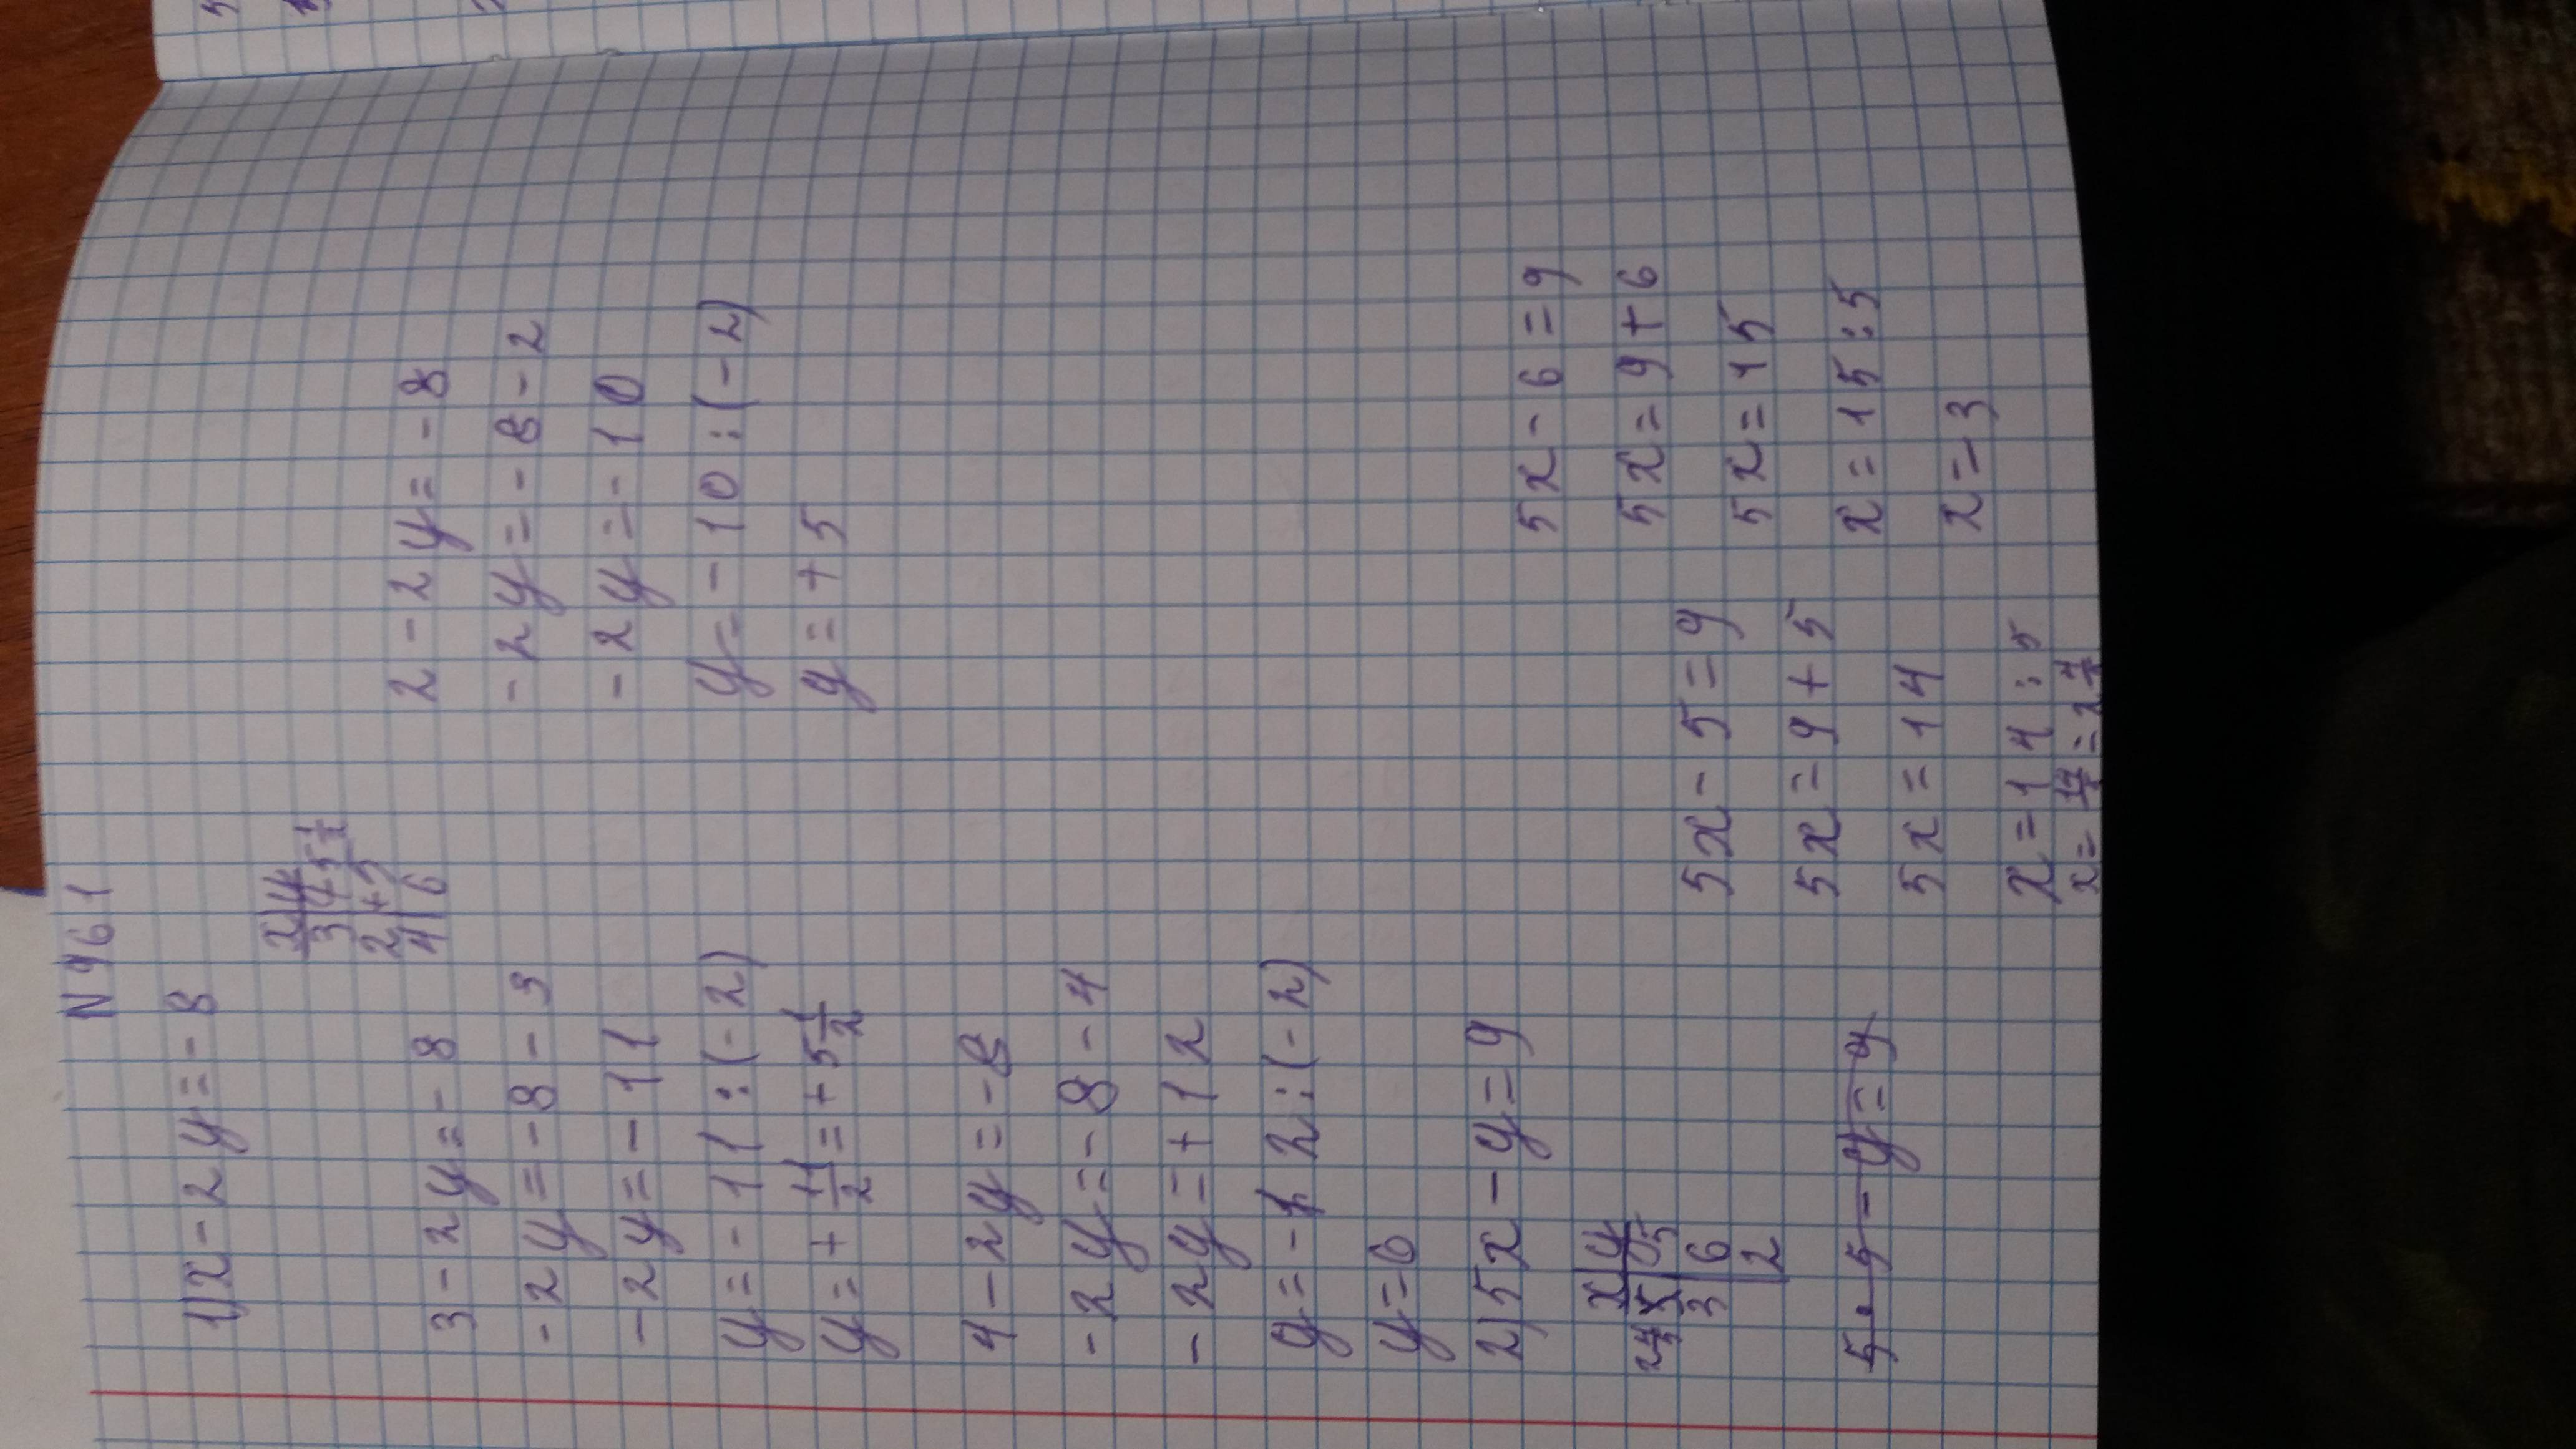 N 961
1) x - 2y = - 8
x | y
3 | 5 1/2
2 | +5
4 | 6
3 - 2y = - 8
- 2y = - 8 - 3
- 2y = - 11
y = - 11 : (- 2)
y = + 11/2 = + 5 1/2
2 - 2y = - 8
- 2y = - 8 - 2
- 2y = - 10
y = - 10 : (- 2)
y = + 5
4 - 2y = - 8
- 2y = - 8 - 4
- 2y = + 12
y = - 12 : (- 2)
y = 6
2) 5x - y = 9
x | y
2 4/5 | 5
3 | 6
| 2
5 · 5 - y = 9
5x - 5 = 9
5x = 9 + 5
5x = 14
x = 14 : 5
x = 14/5 = 2 4/5
5x - 6 = 9
5x = 9 + 6
5x = 15
x = 15 : 5
x = 3